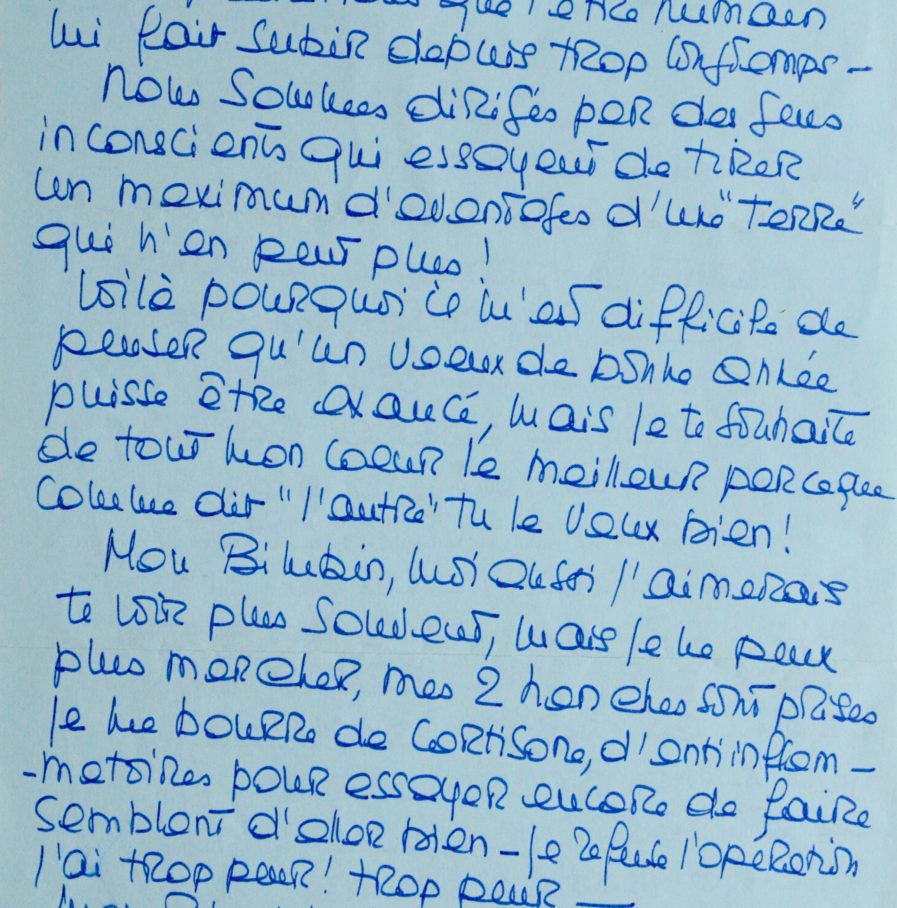 que l'être humain
lui fait subir depuis trop longtemps -
Nous sommes dirigés par des gens
inconscients qui essayent de tirer
un maximum d'avantages d'une "terre"
qui n'en peut plus !
Voilà pourquoi ce m'est difficile de
penser qu'un voeux de bonne année
puisse être exaucé, mais je te souhaite
de tout mon coeur le meilleur parceque
comme dit "l'autre" tu le vaux bien !
Mon Bilubin, moi aussi j'aimerais
te voir plus souvent, mais je ne peux
plus marcher, mes 2 hanches sont prises
je me bourre de cortisone, d'antiinflam-
-matoires pour essayer encore de faire
semblant d'aller bien - je refuse l'opération
j'ai trop peur ! trop peur —